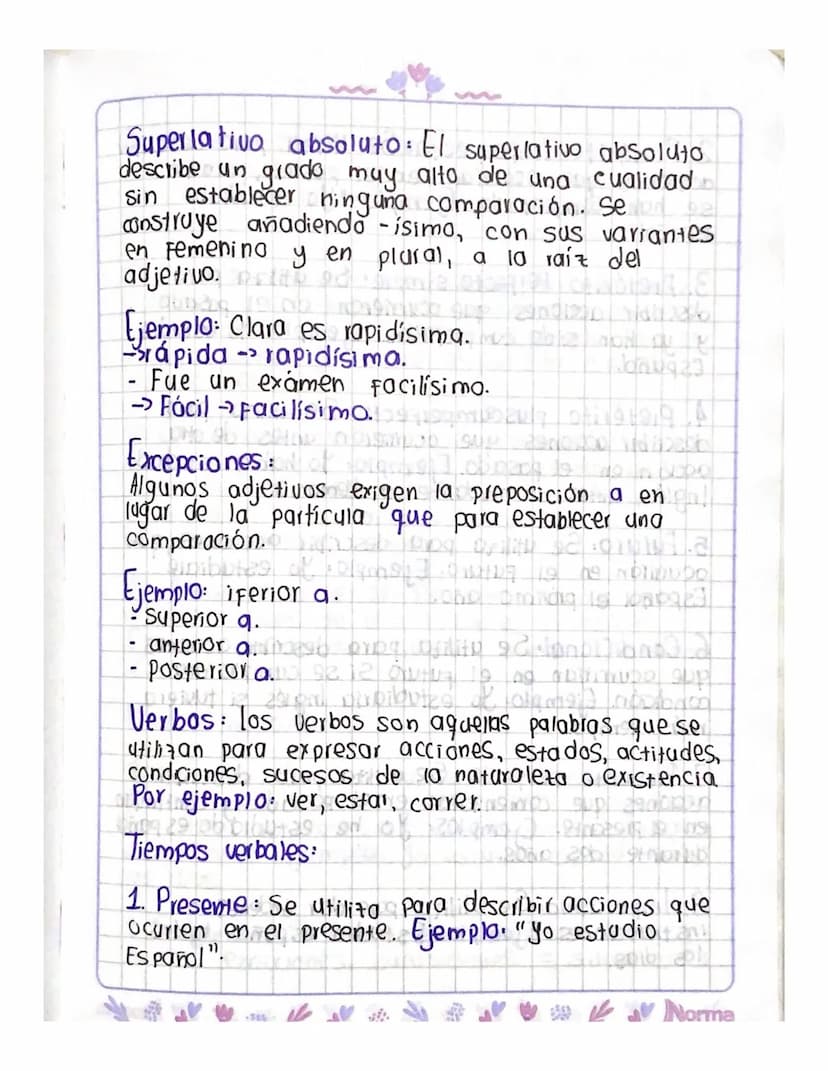 Superlativo absoluto: El superlativo absoluto
describe un grado muy alto de una cualidad
sin establecer ninguna comparación. Se
construye añadiendo -ísimo, con sus variantes
en femenino y en plural, a la raíz del
adjetivo.
Ejemplo: Clara es rapidísima.
→rápida → rapidísima.
- Fue un exámen facilísimo.
→ Fácil → Facilísimo.
Excepciones:
Algunos adjetivos exigen la preposición a en
lugar de la partícula que para establecer una
comparación.
Ejemplo: iferior a.
- Superior a.
- anterior a.
- Posterior a.
Verbos: los verbos son aquellas palabras que se
utilizan para expresar acciones, estados, actitudes,
condciones, sucesos de la naturaleza o existencia
Por ejemplo: ver, estar, correr.
Tiempos verbales:
1. Presente: Se utiliza para describir acciones que
ocurren en el presente. Ejemplo: "Yo estudio
Español".
Norma